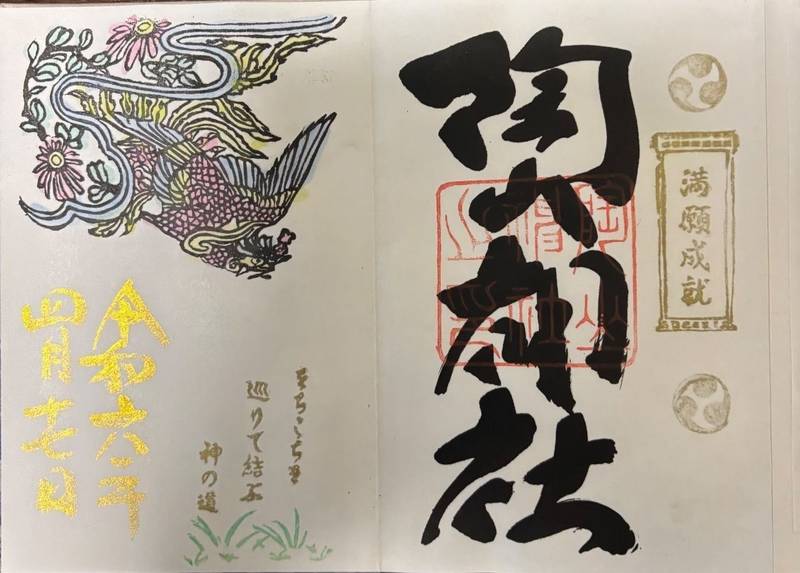 満願成就
陶山神社
をちこちを
巡りて結ぶ
神の道
令和六年
四月十七日